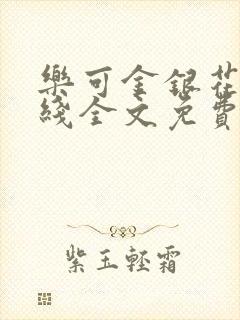 樂可金銀花
綫全文免費
紫玉輕霜